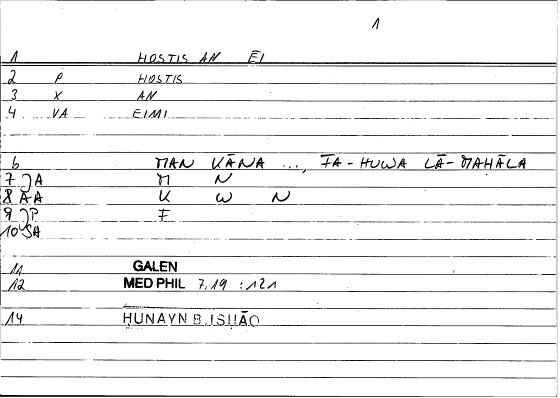 1
1 HOSTIS AN EI
2 P HOSTIS
3 X AN
4 VA EIMI
6 MAN KĀNA ..., FA-HUWA LĀ-MAHĀLA
7 JA M N
8 AA K W N
9 JP F
10 SA
11 GALEN
12 MED PHIL 7,19 :121
14 HUNAYN B.ISHĀQ